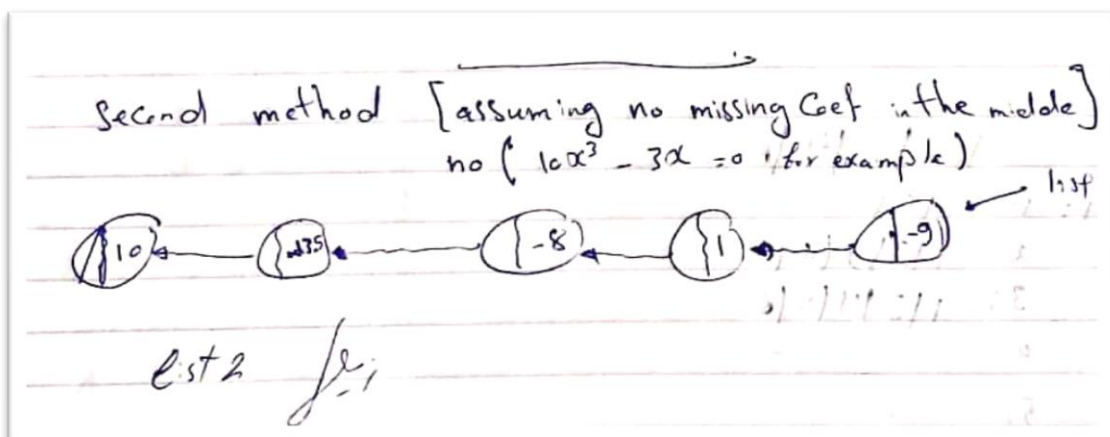 Second method [assuming no missing Coef in the middle]
no ( 10x³ - 3x = 0 , for example)
list
10 35 -8 1 -9
list 2